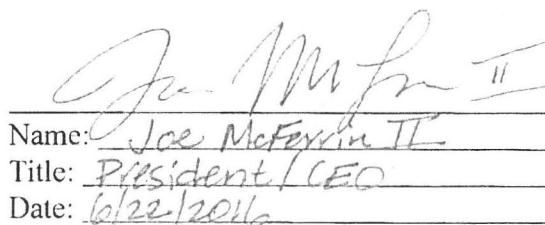 Joe McFerrin II
Name: Joe McFerrin II
Title: President/CEO
Date: 6/22/2016